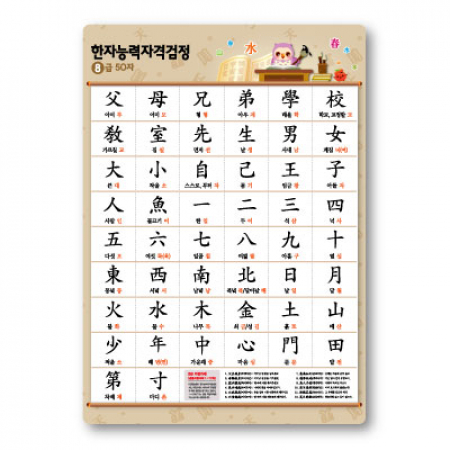 한자능력자격검정
8급 50자
水 春
父 母 兄 弟 學 校
아비 부 어미 모 형 형 아우 제 배울 학 학교, 교정할 교
敎 室 先 生 男 女
가르칠 교 집 실 먼저 선 날 생 사내 남 계집 녀(여)
大 小 自 己 王 子
큰 대 작을 소 스스로, 부터 자 몸 기 임금 왕 아들 자
人 魚 一 二 三 四
사람 인 물고기 어 한 일 두 이 석 삼 넉 사
五 六 七 八 九 十
다섯 오 여섯 육(륙) 일곱 칠 여덟 팔 아홉 구 열 십
東 西 南 北 日 月
동녘 동 서녘 서 남녘 남 북녘 북/달아날 배 날 일 달 월
火 水 木 金 土 山
불 화 물 수 나무 목 쇠 금/성 김 흙 토 메 산
少 年 中 心 門 田
소 해 년(연) 가운데 중 마음 심 문 문 밭 전
第 寸
차례 제 마디 촌